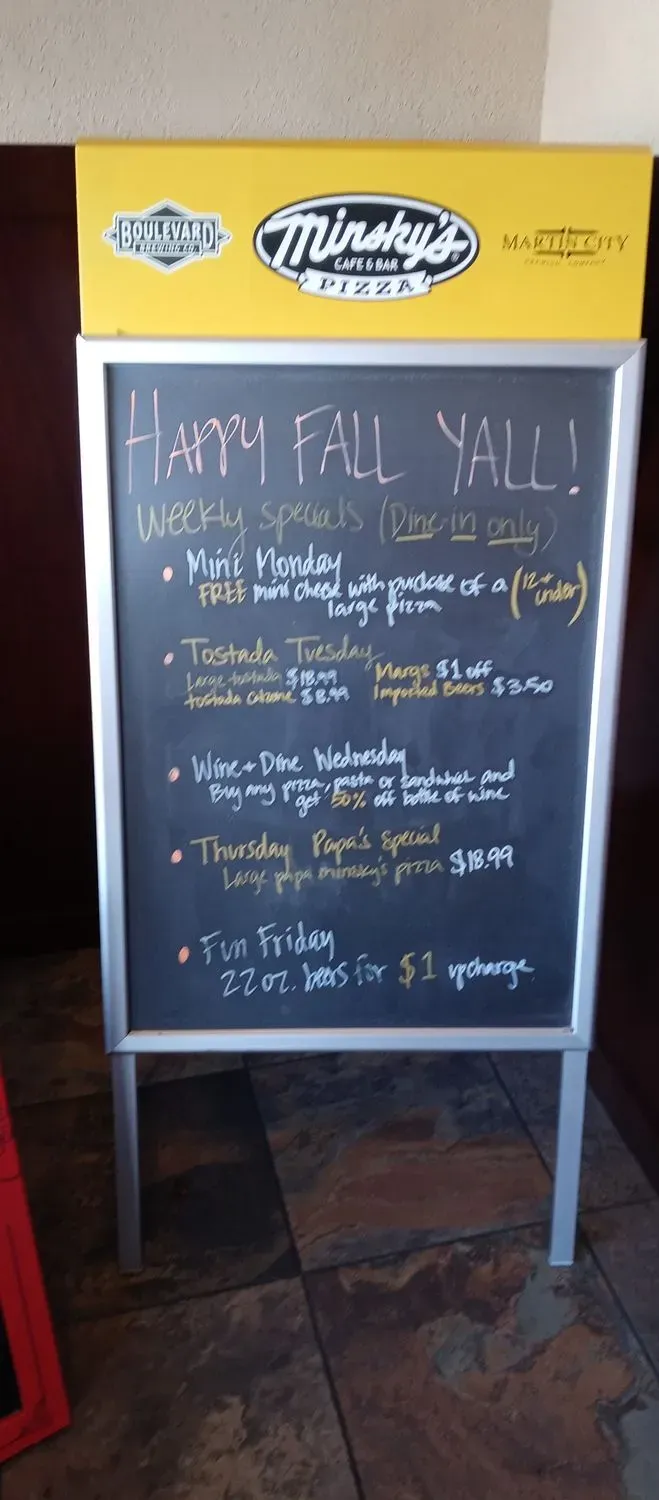 BOULEVARD
BREWING CO.
Minsky's
CAFE & BAR
PIZZA
MARTIN CITY
HAPPY FALL YALL!
Weekly specials (Dine-in only)
• Mini Monday
FREE mini cheese with purchase of a (12 + under)
large pizza
• Tostada Tuesday
Large tostada $18.99 Margs $1 off
tostada calzone $8.99 Imported Beers $3.50
• Wine + Dine Wednesday
Buy any pizza, pasta or sandwhich and
get 50% off bottle of wine
• Thursday Papa's Special
Large papa minsky's pizza $18.99
• Fun Friday
22 oz. beers for $1 upcharge